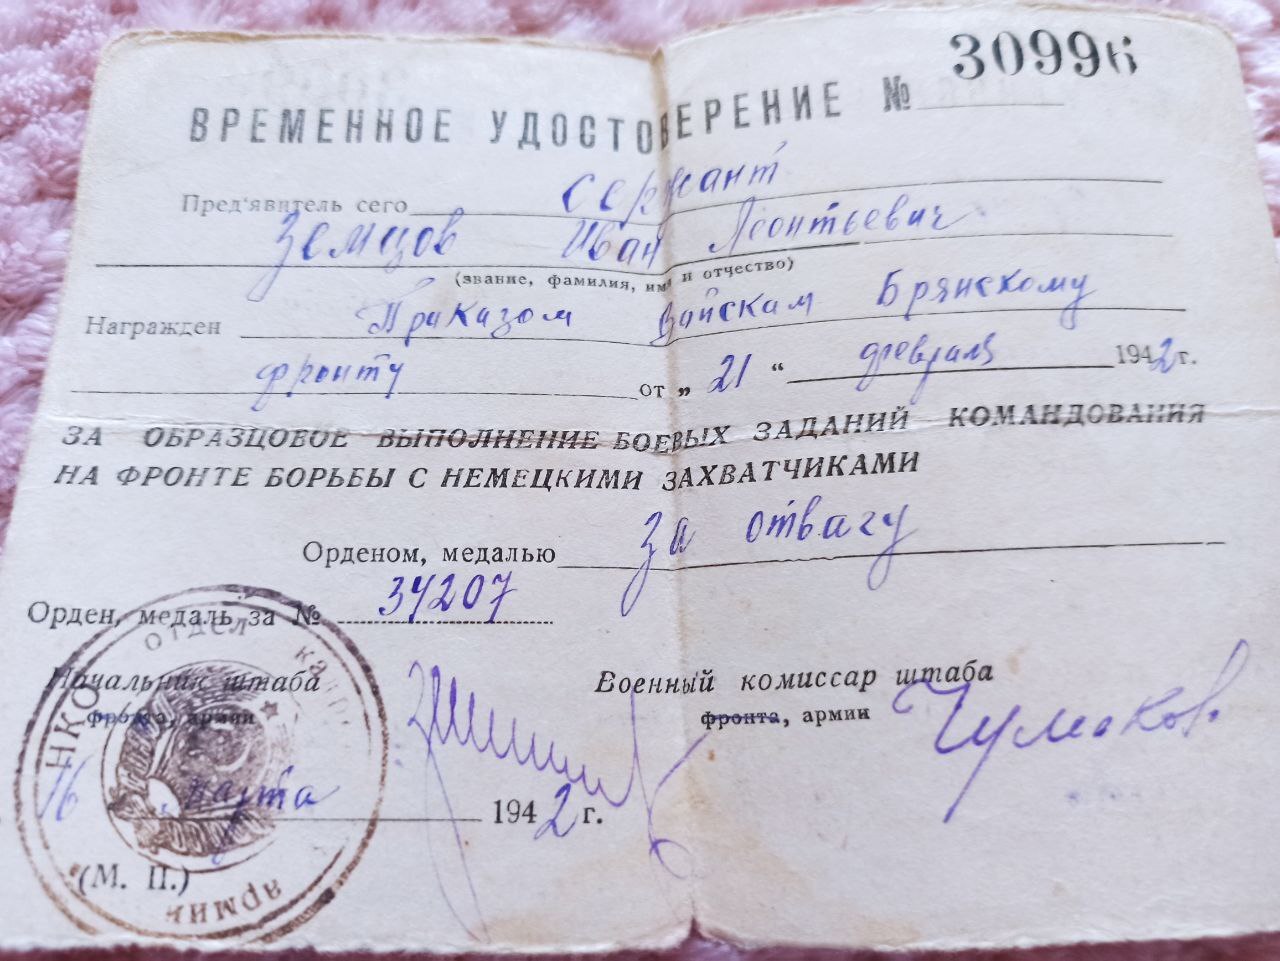 ВРЕМЕННОЕ УДОСТОВЕРЕНИЕ № 30996
Пред'явитель сего сержант
Земцов Иван Леонтьевич
(звание, фамилия, имя и отчество)
Награжден Приказом Войскам Брянскому
фронту от „ 21 “ февраля 1942 г.
ЗА ОБРАЗЦОВОЕ ВЫПОЛНЕНИЕ БОЕВЫХ ЗАДАНИЙ КОМАНДОВАНИЯ
НА ФРОНТЕ БОРЬБЫ С НЕМЕЦКИМИ ЗАХВАТЧИКАМИ
Орденом, медалью За отвагу
Орден, медаль за № 34207
Начальник штаба Военный комиссар штаба
фронта, армии фронта, армии Чумаков
16 марта 1942 г.
(М. П.)
НКО отдел армии